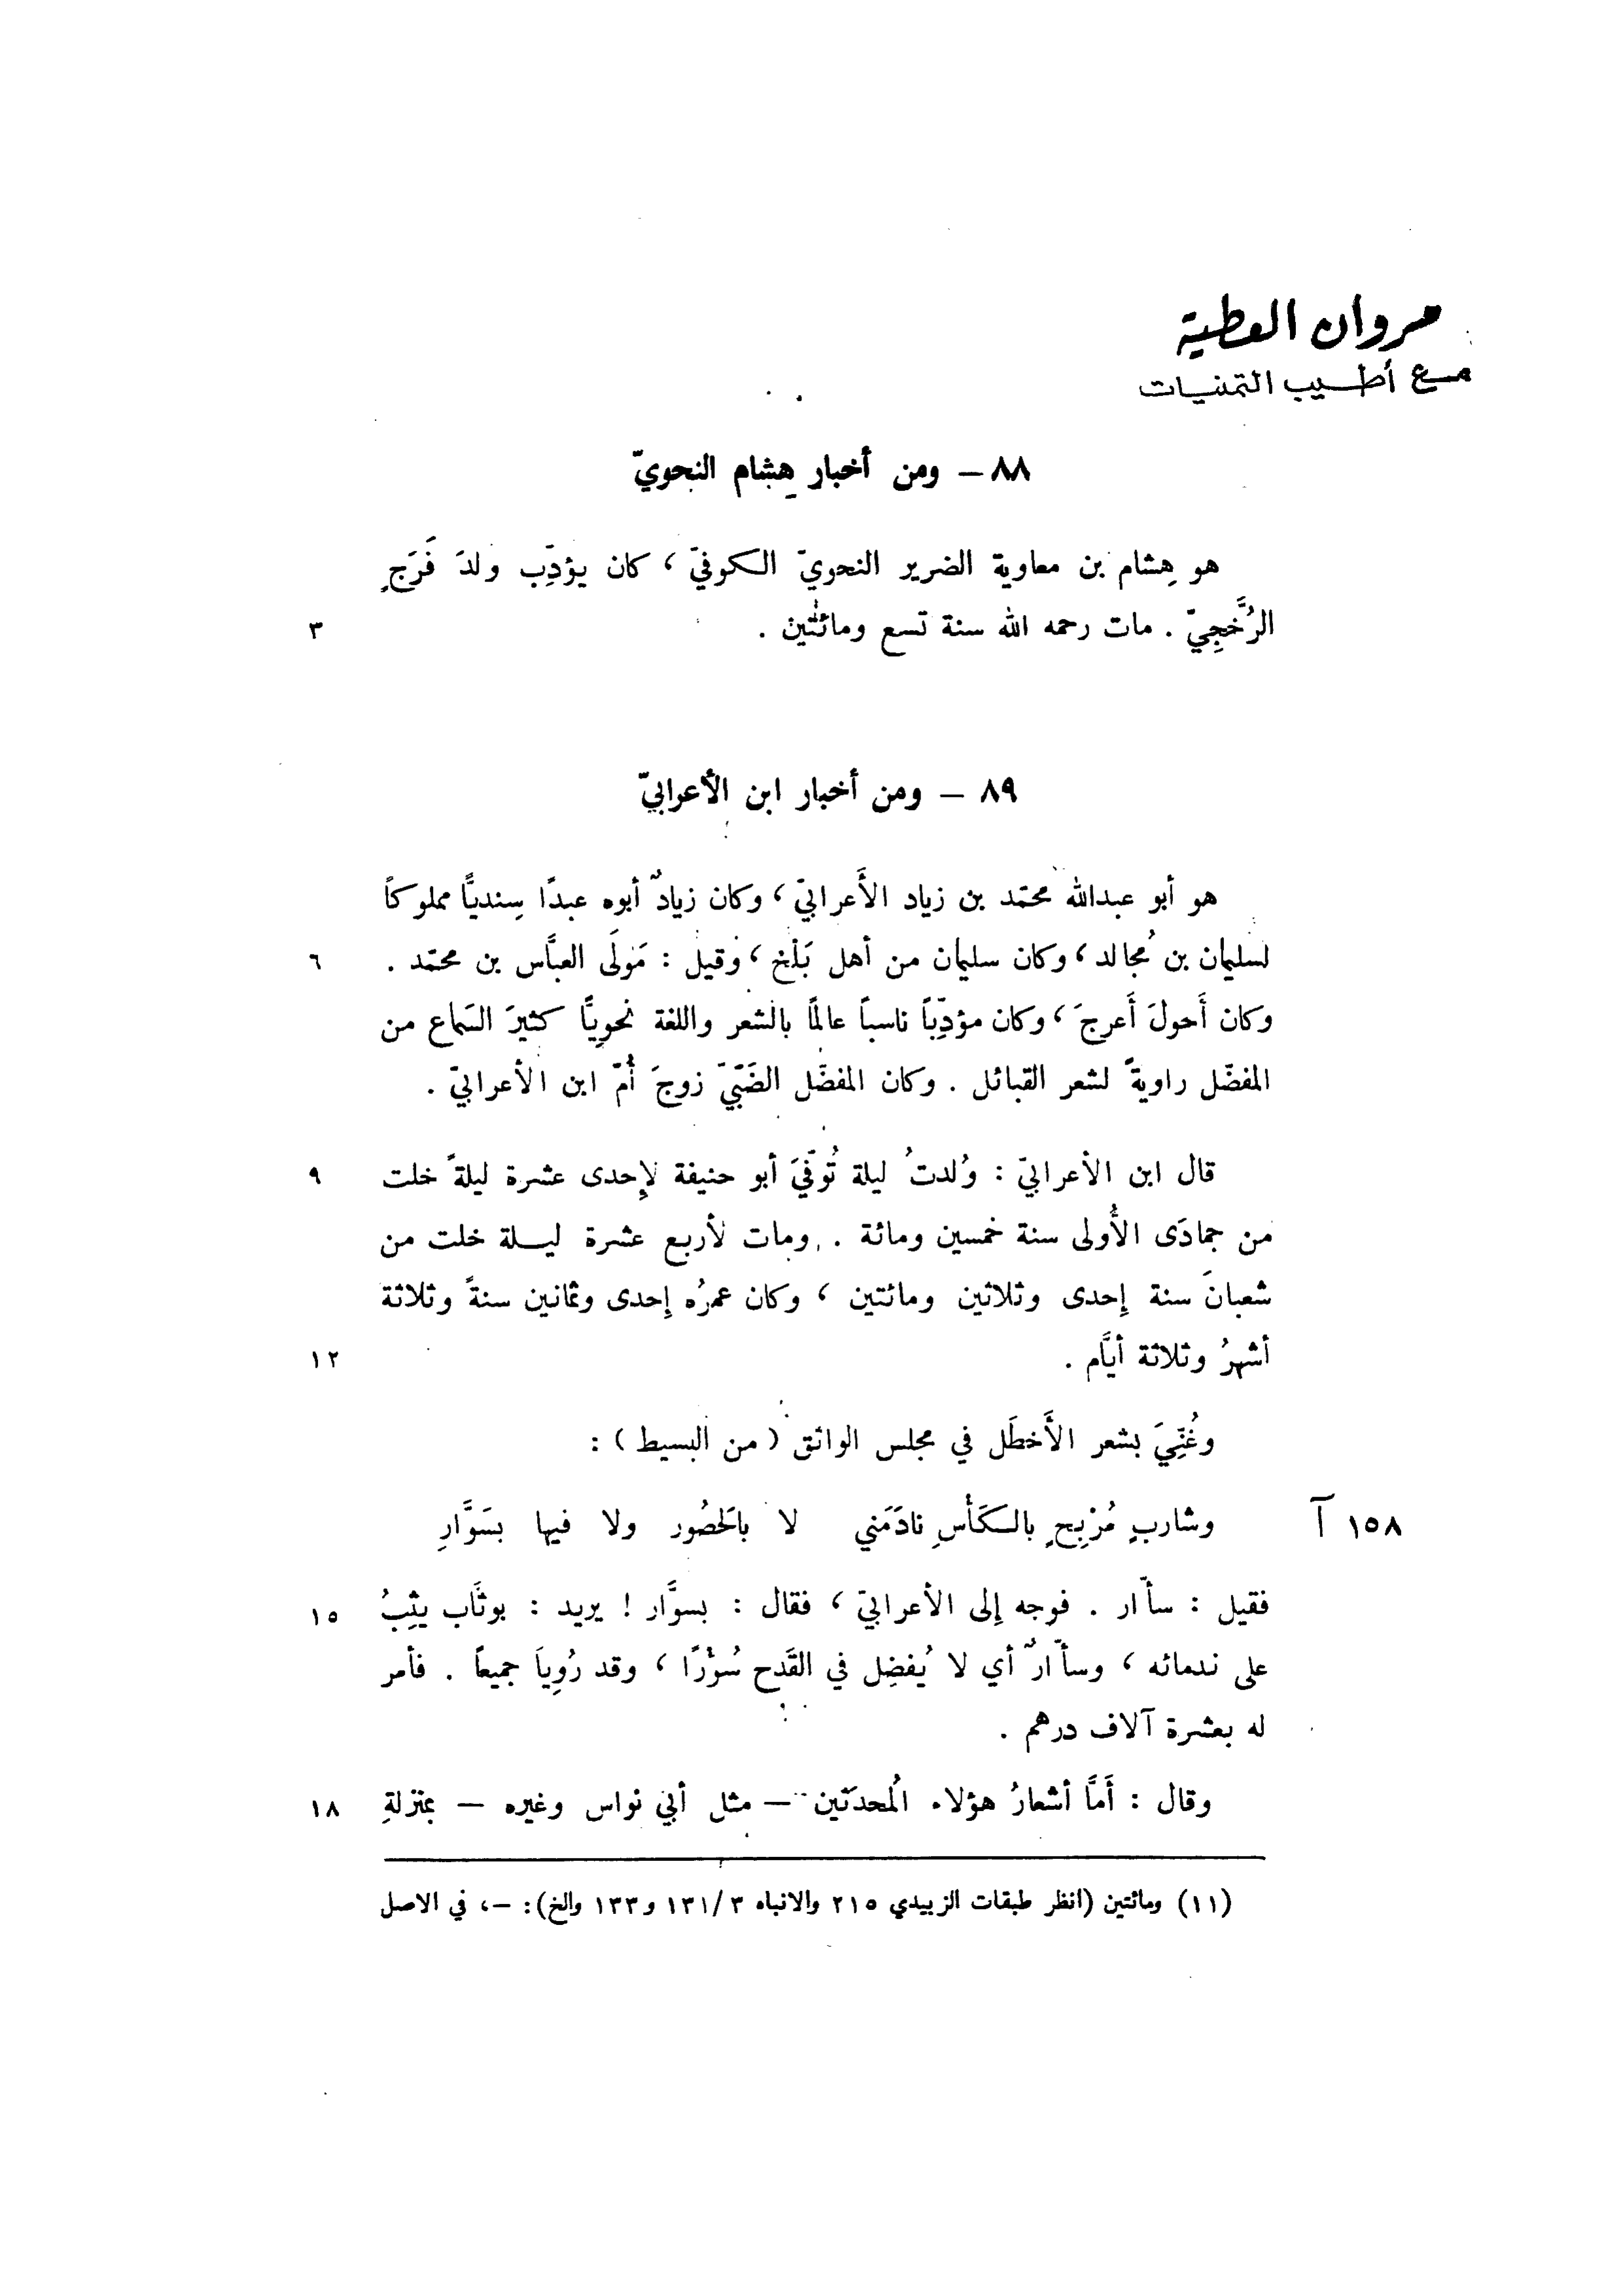 مروان العطية
مع أطيب التمنيات
٨٨ – ومن أخبار هشام النحويّ
هو هِشام بن معاوية الضرير النحويّ الكوفيّ ، كان يؤدِّب ولدَ فَرَجٍ
الرُّخَّجِيّ . مات رحمه الله سنة تسع ومائتين . ٣
٨٩ – ومن أخبار ابن الأعرابيّ
هو أبو عبدالله محمّد بن زياد الأَعرابيّ ، وكان زيادٌ أبوه عبدًا سِنديًّا مملوكاً
لسليمان بن مُجالد ، وكان سليمان من أهل بَلْخ ، وقيل : مَولَى العبَّاس بن محمّد . ٦
وكان أَحولَ أَعرجَ ، وكان مؤدِّباً ناسباً عالمًا بالشعر واللغة نحويًّا كثيرَ السَماع من
المفضّل راويةً لشعر القبائل . وكان المفضّل الضَبّيّ زوجَ أُمّ ابن الأعرابيّ .
قال ابن الأعرابيّ : وُلدتُ ليلة تُوفّيَ أبو حنيفة لإِحدى عشرة ليلةً خلت ٩
من جمادَى الأُولى سنة خمسين ومائة . ومات لأربع عشرة ليلة خلت من
شعبانَ سنة إِحدى وثلاثين ومائتين ، وكان عمرُه إِحدى وثمانين سنةً وثلاثة
أشهرُ وثلاثة أيَّام . ١٢
وغُنِّيَ بشعر الأَخطَل في مجلس الواثق ( من البسيط ) :
١٥٨ آ وشاربٍ مُرْبِحٍ بالكَأْسِ نادَمَني لا بالحَصُور ولا فيها بسَوَّارِ
فقيل : سأّار . فوجه إلى الأعرابيّ ، فقال : بسوَّار ! يريد : بوثَّاب يثِبُ ١٥
على ندمائه ، وسأّارٌ أي لا يُفضِل في القَدح سُؤْرًا ، وقد رُوِيَا جميعاً . فأمر
له بعشرة آلاف درهم .
وقال : أَمَّا أشعارُ هؤلاء المُحدَثين – مثل أبي نواس وغيره – بمنزلةِ ١٨
(١١) ومائتين (انظر طبقات الزبيدي ٢١٥ والانباه ٣/١٣١ و١٣٣ والخ): –، في الاصل